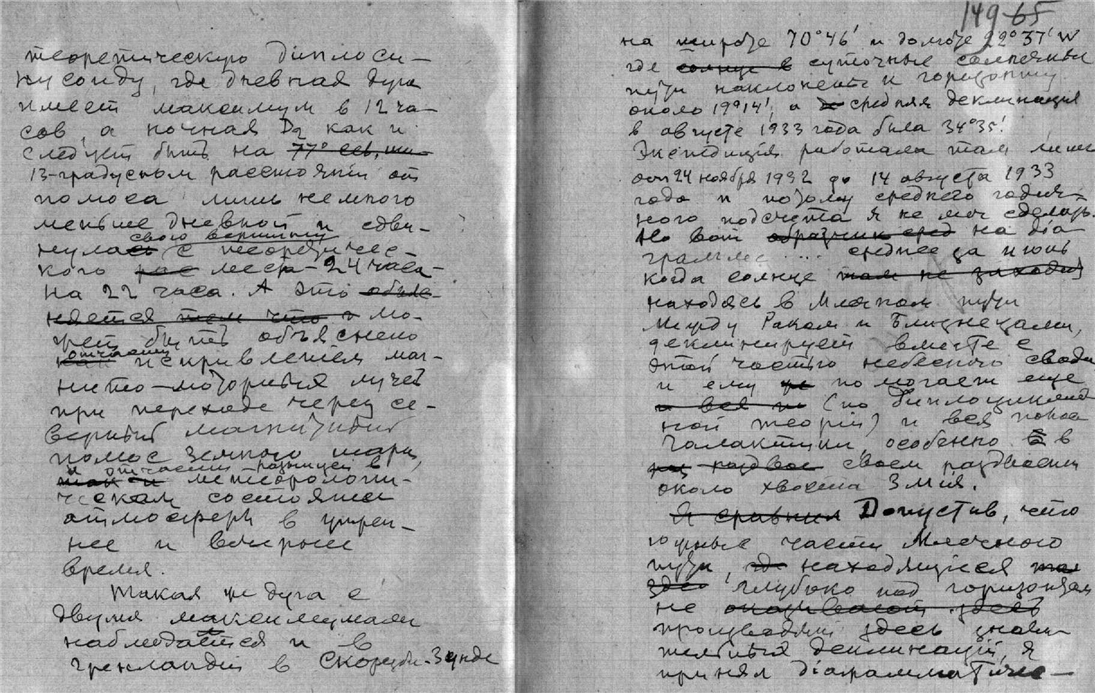 теоретическую диплоси-
нусоиду, где дневная дуга
имеет максимум в 12 ча-
сов, а ночная Д2 как и
следует быть на 77° сев, ши-
13-градусном расстоянии от
полюса лишь немного
меньше дневной и сдви-
нула свою вершину
сь с теоретичес-
кого рас места - 24 часа -
на 22 часа. А это объяс-
няется тем что и мо-
жет быть объяснено
как отчасти искривлением маг-
нито-моторных лучей
при переходе через се-
верный магнитный
полюс земного шара,
и отчасти разницей в
так и метеорологи-
ческом состоянии
атмосферы в утрен-
нее и вечернее
время.
Такая же дуга с
двумя максимумами
наблюдается и в
Гренландии в Скоресби-Зунде
149-65
на широте 70°46' и долготе 22°37' W
где солнце в суточные солнечные
пути наклонены к горизонту
около 19°14', а средняя деклинация
в августе 1933 года была 34°35'.
Экспедиция работала там лишь
от 24 ноября 1932 до 14 августа 1933
года и потому среднего годич-
ного подсчета я не мог сделать.
Но вот образчик сред на діа-
грамме .... среднее за июнь
когда солнце там не заходит
находясь в Млечном пути
между Раком и Близнецами,
деклинирует вместе с
этой частью небесного свода
и ему помогает еще
и вся (по диплоциклоид
ной теории) и вся полоса
Галактики особенно в
раздвое своем раздвоении
около хвоста Змія.
Я сравнил Допустив, что
южные части Млечного
пути, где находящиеся там
здесь глубоко под горизонтом
не оказывают здесь
производят здесь значи-
тельных деклинаций я
принял діаграмматичес-